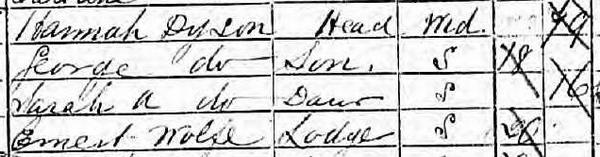 Hannah Dyson Head Wid. 49
George do Son. S 18
Sarah A do Daur S 16
Ernest Wolfe Lodger S 20